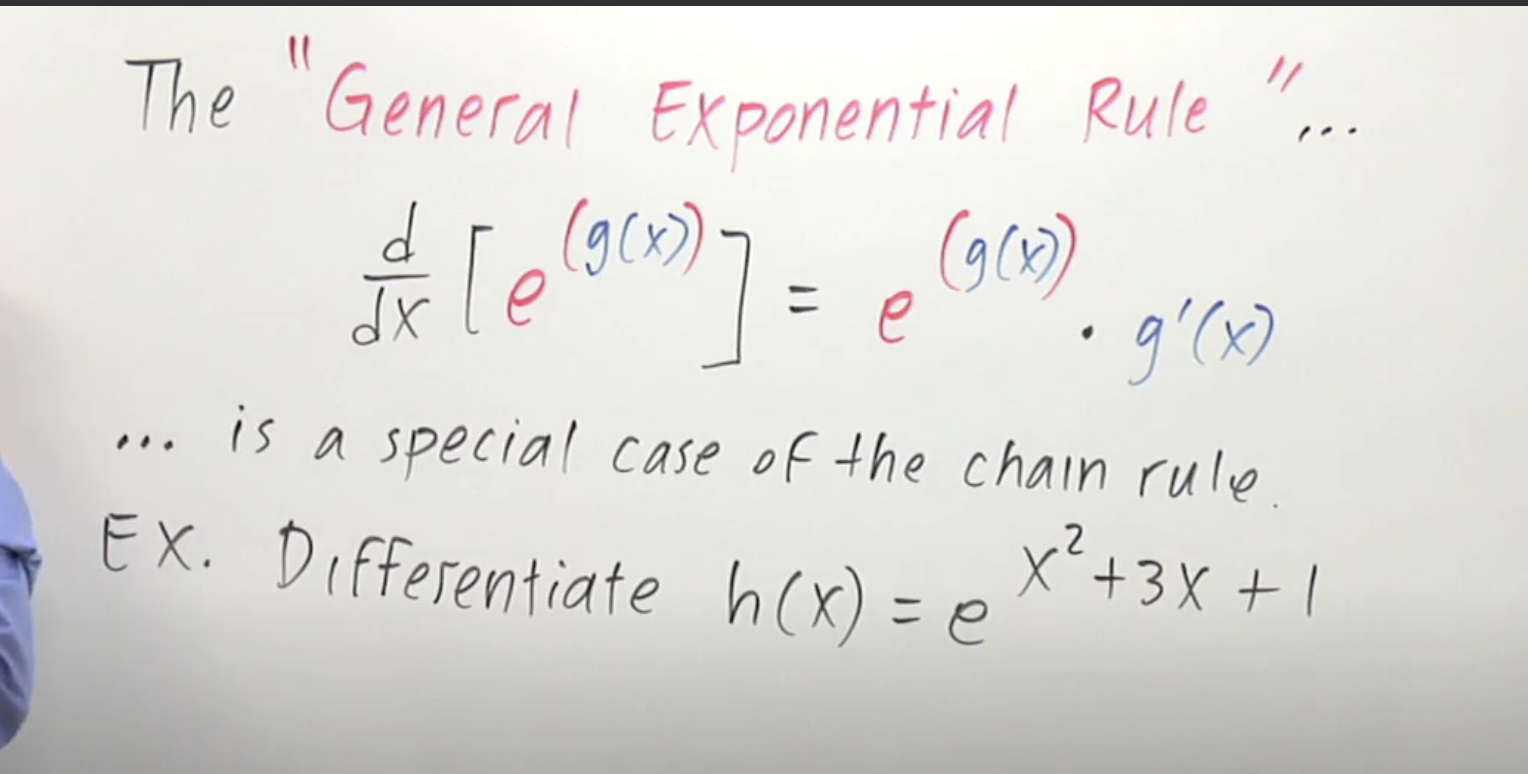 The "General Exponential Rule"...
d/dx [e^(g(x))] = e^(g(x)) · g'(x)
... is a special case of the chain rule.
EX. Differentiate h(x) = e^x²+3x+1